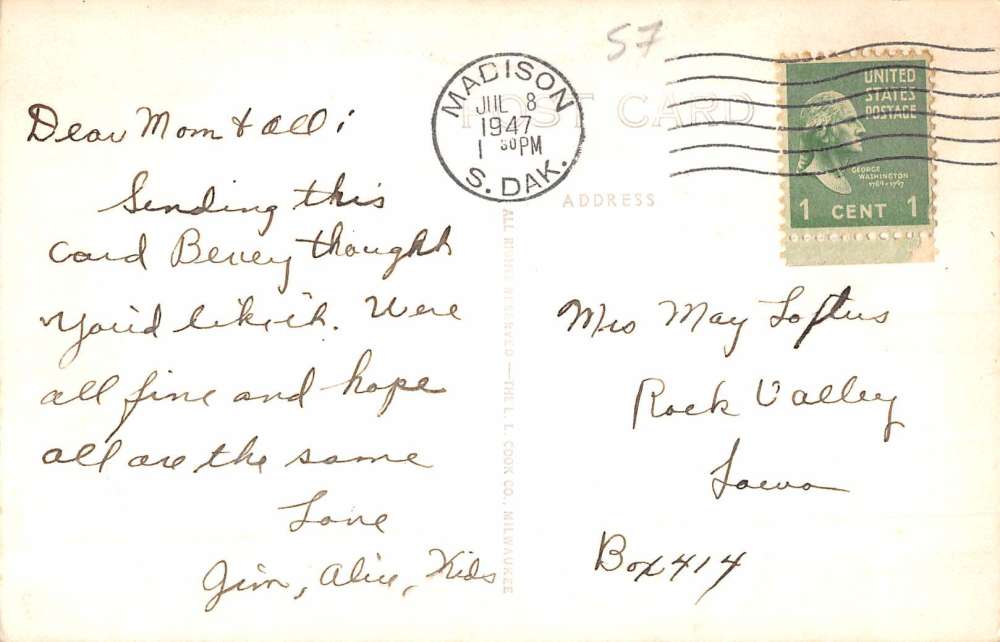 57
MADISON
JUL 8
1947
1 30PM
S. DAK.
POST CARD
UNITED
STATES
POSTAGE
GEORGE
WASHINGTON
1789-1797
1 CENT 1
ADDRESS
Dear Mom & all;
Sending this
card Bevey thought
you'd like it. Were
all fine and hope
all are the same
Love
Jim, Alice, Kids
ALL RIGHTS RESERVED — THE L. L. COOK CO., MILWAUKEE
Mrs May Loftus
Rock Valley
Iowa
Box 414